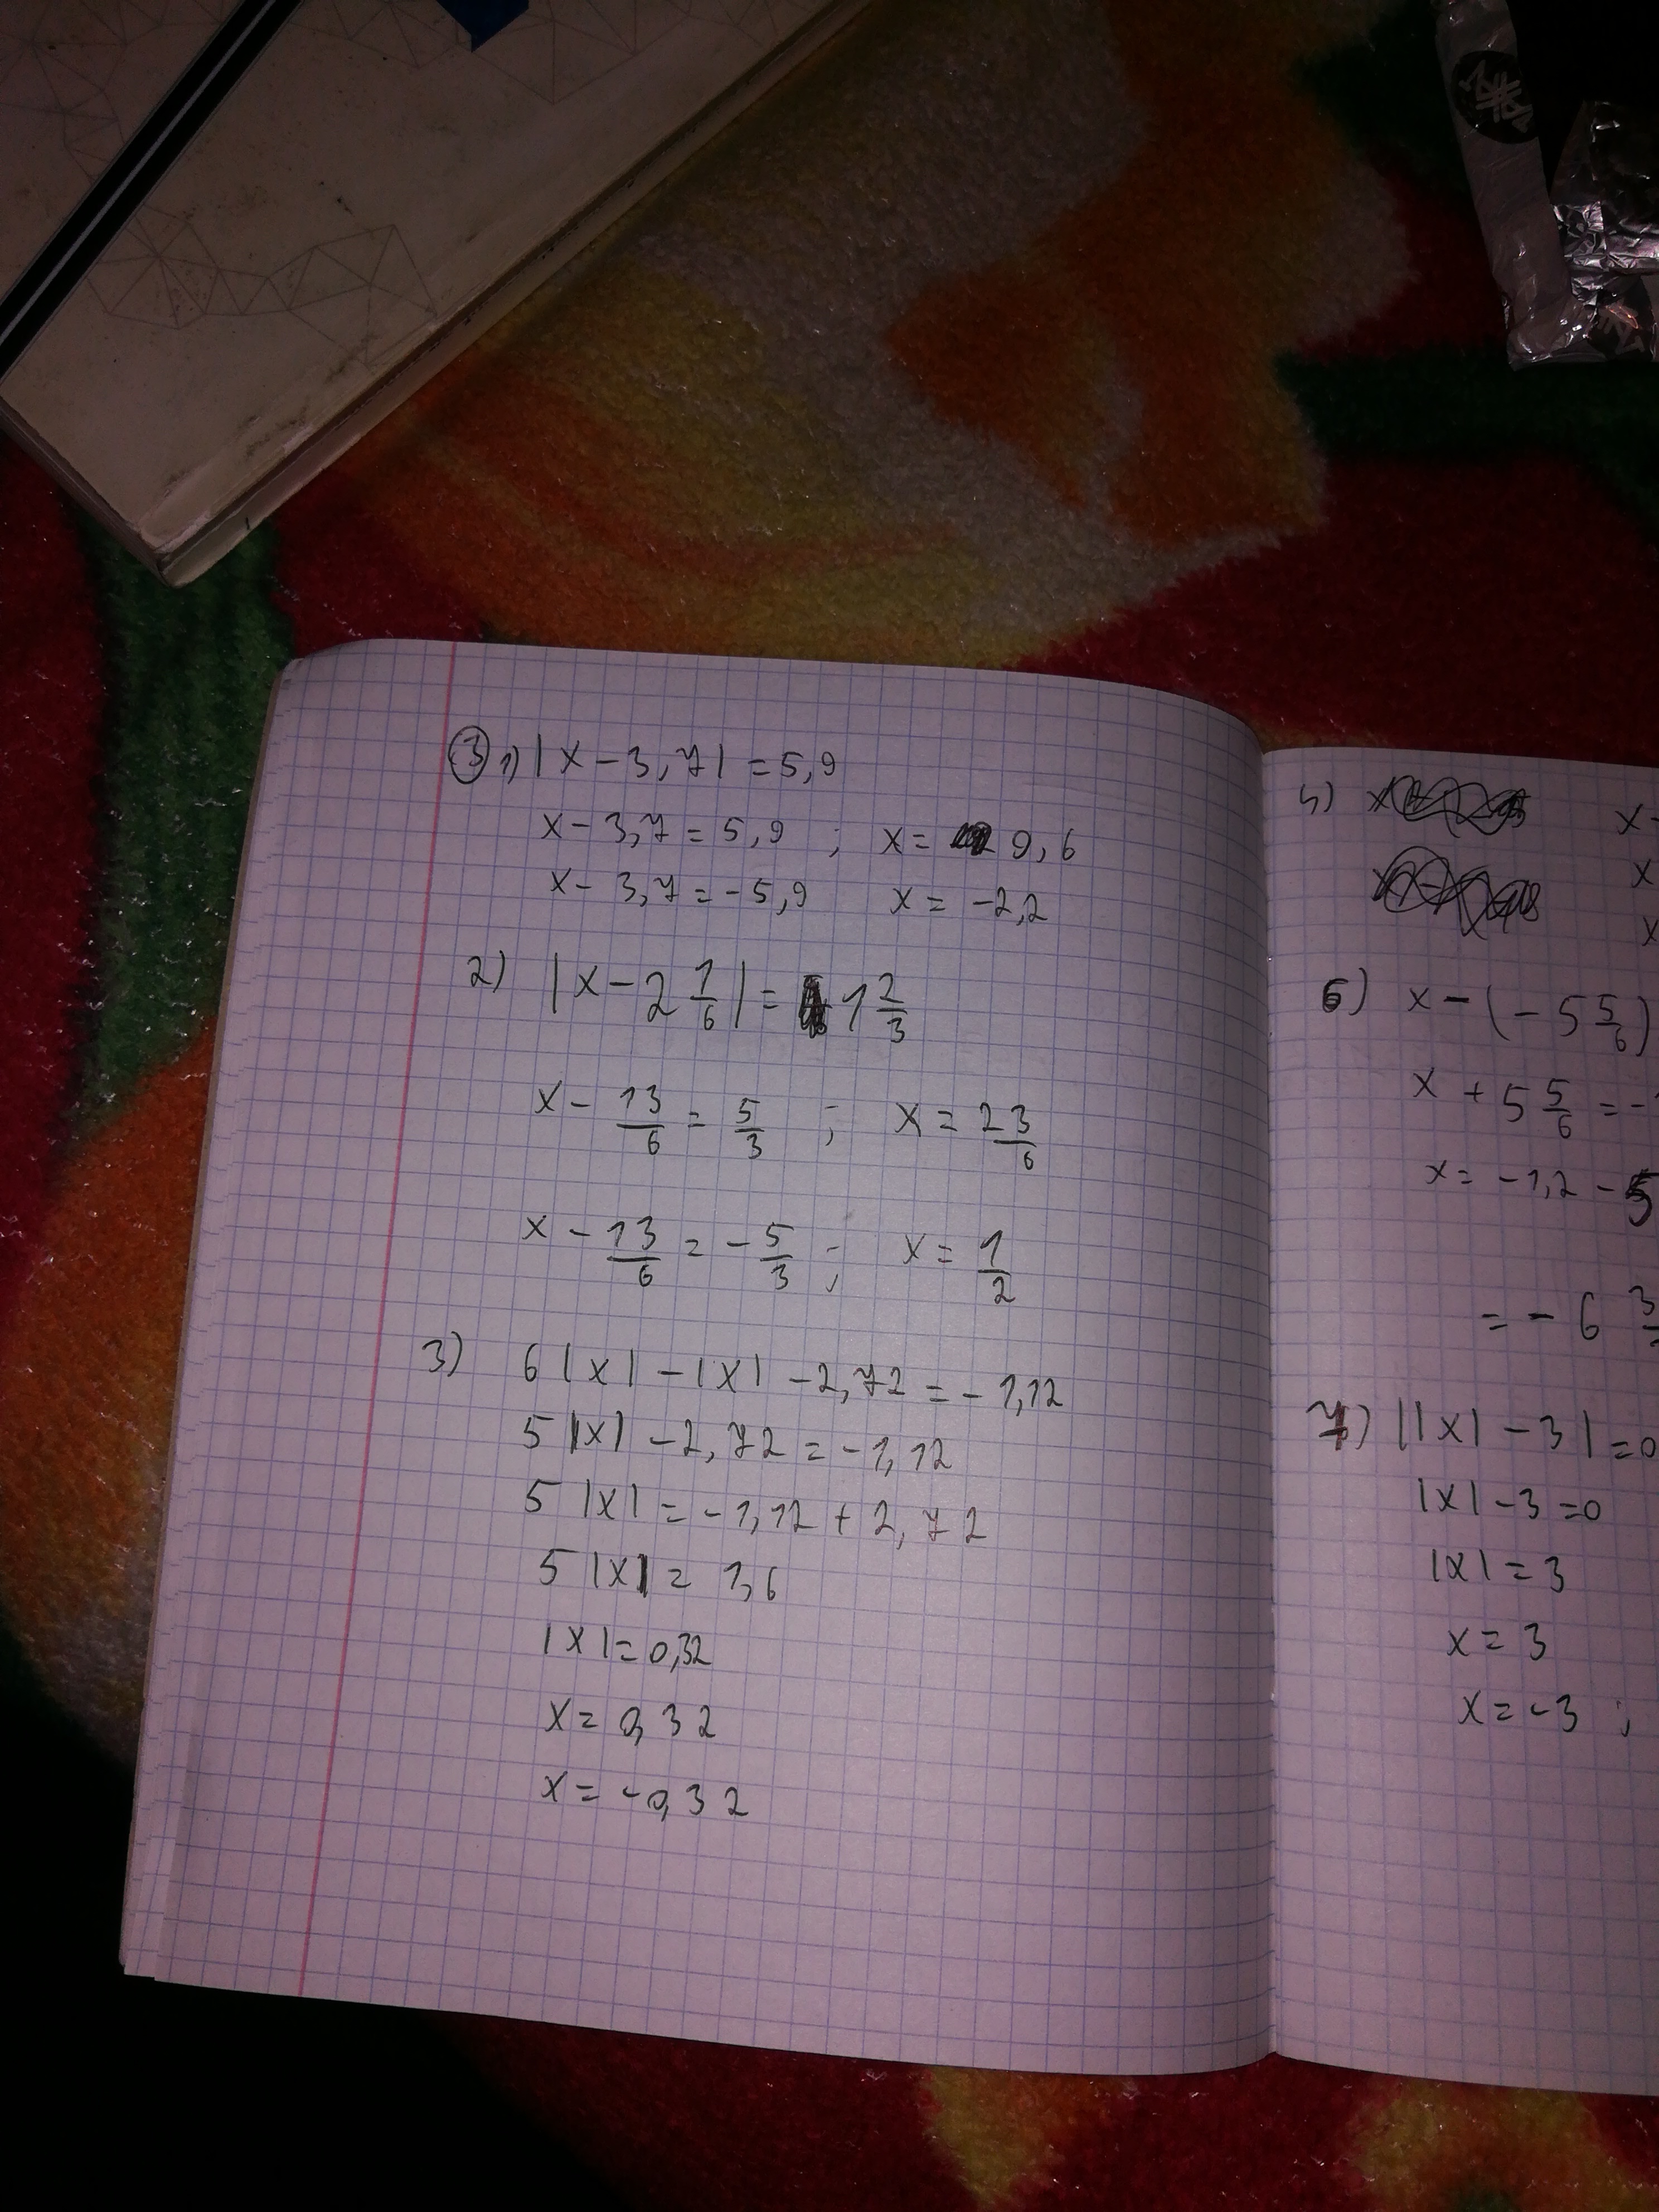 ③ 1) |x-3,7| = 5,9
x-3,7 = 5,9 ; x = 9,6
x-3,7 = -5,9 x = -2,2
2) |x-2 1/6| = 1 2/3
x - 13/6 = 5/3 ; x = 23/6
x - 13/6 = -5/3 ; x = 1/2
3) 6|x|-|x|-2,72 = -1,12
5|x|-2,72 = -1,12
5|x| = -1,12 + 2,72
5|x| = 1,6
|x| = 0,32
x = 0,32
x = -0,32
4) x-
x
x
6) x-(-5 5/6)
x + 5 5/6 = -
x = -1,2 - 5
= - 6 3
7) ||x|-3| = 0
|x|-3 = 0
|x| = 3
x = 3
x = -3 ;